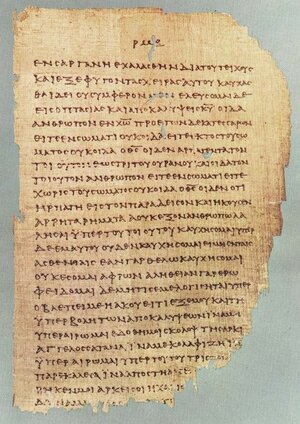 ΕΝϹΑΡΓΑΝΗΕΧΑΛΑϹΘΗΝΔΙΑΤΟΥΤΕΙΧΟΥϹ
ΚΑΙΕΞΕΦΥΓΟΝΤΑϹΧΕΙΡΑϹΑΥΤΟΥΚΑΥΧΑϹ
ΘΑΙΔΕΙΟΥϹΥΜΦΕΡΟΝΜΕΝΕΛΕΥϹΟΜΑΙΔΕ
ΕΙϹΟΠΤΑϹΙΑϹΚΑΙΑΠΟΚΑΛΥΨΕΙϹΚ̅Υ̅ΟΙΔΑ
ΑΝΘΡΩΠΟΝΕΝΧ̅Ω̅ΠΡΟΕΤΩΝΔΕΚΑΤΕϹϹΑΡΩΝ
ΕΙΤΕΕΝϹΩΜΑΤΙΟΥΚΟΙΔΑΕΙΤΕΕΚΤΟϹΤΟΥϹΩ
ΜΑΤΟϹΟΥΚΟΙΔΑΟΘ̅Ϲ̅ΟΙΔΕΝΑΡΠΑΓΕΝΤΑΤΟΝ
ΤΟΙΟΥΤΟΝΕΩϹΤΡΙΤΟΥΟΥΡΑΝΟΥΚΑΙΟΙΔΑΤΟΝ
ΤΟΙΟΥΤΟΝΑΝΘΡΩΠΟΝΕΙΤΕΕΝϹΩΜΑΤΙΕΙΤΕ
ΧΩΡΙϹΤΟΥϹΩΜΑΤΟϹΟΥΚΟΙΔΑΟΘ̅Ϲ̅ΟΙΔΕΝΟΤΙ
ΗΡΠΑΓΗΕΙϹΤΟΝΠΑΡΑΔΕΙϹΟΝΚΑΙΗΚΟΥϹΕΝ
ΑΡΡΗΤΑΡΗΜΑΤΑΑΟΥΚΕΞΟΝΑΝΘΡΩΠΩΛΑ
ΛΗϹΑΙΥΠΕΡΤΟΥΤΟΙΟΥΤΟΥΚΑΥΧΗϹΟΜΑΙΥΠΕΡ
ΔΕΕΜΑΥΤΟΥΟΥΔΕΝΚΑΥΧΗϹΟΜΑΙΕΙΜΗΕΝΤΑΙϹ
ΑϹΘΕΝΕΙΑΙϹΕΑΝΓΑΡΘΕΛΩΚΑΥΧΗϹΟΜΑΙ
ΟΥΚΕϹΟΜΑΙΑΦΡΩΝΑΛΗΘΕΙΑΝΓΑΡΕΡΩ
ΦΕΙΔΟΜΑΙΔΕΜΗΤΙϹΕΜΕΛΟΓΙϹΗΤΑΙΥΠΕΡ
ΟΒΛΕΠΕΙΜΕΗΑΚΟΥΕΙΤΙΕΞΕΜΟΥΚΑΙΤΗ
ΥΠΕΡΒΟΛΗΤΩΝΑΠΟΚΑΛΥΨΕΩΝΙΝΑΜΗ
ΥΠΕΡΑΙΡΩΜΑΙΕΔΟΘΗΜΟΙϹΚΟΛΟΨΤΗϹΑΡΚΙ
ΑΓΓΕΛΟϹϹΑΤΑΝΑΙΝΑΜΕΚΟΛΑΦΙΖΗΙΝΑ
ΥΠΕΡΑΙΡΩΜΑΙΥΠΕΡΤΟΥΤΟΥΤΡΙϹΤΟΝ
ΠΑΡΕΚΑΛΕϹΑΙΝΑΑΠΟϹΤΗΑΠ
ΡΗΚΕΝΜΟΙΑΡΚΕΙϹΟΙΗΧΑΡΙϹ